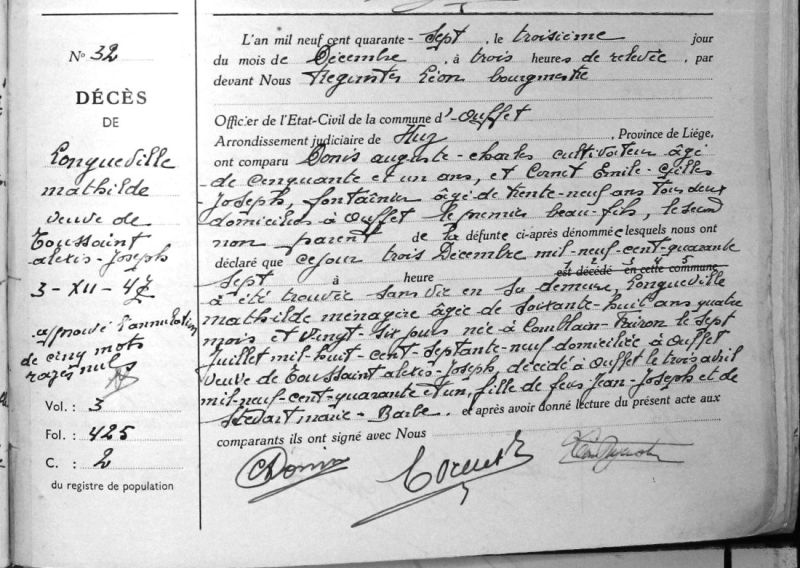 N° 32
DÉCÈS
DE
Longueville
mathilde
veuve de
Toussaint
alexis-Joseph
3-XII-47
approuvé l'annulation
de cinq mots
rayés nuls
Vol.: 3
Fol.: 425
C.: 2
du registre de population
L'an mil neuf cent quarante-sept, le troisième jour
du mois de Décembre, à trois heures de relevée, par
devant Nous Léon bourgmestre
Officier de l'Etat-Civil de la commune d'Ouffet
Arrondissement judiciaire de Huy, Province de Liége,
ont comparu Donis auguste-charles cultivateur âgé
de cinquante et un ans, et Cornet Emile-Gilles
Joseph, fontainier âgé de trente-neuf ans tous deux
domiciliés à Ouffet le premier beau-fils, le second
non parent de la défunte ci-après dénommée lesquels nous ont
déclaré que ce jour trois Décembre mil-neuf-cent-quarante
sept à heure est décédé en cette commune
1 2 3 4 5
a été trouvée sans vie en sa demeure, Longueville
mathilde ménagère âgée de soixante-huit ans quatre
mois et vingt-six jours née à Comblain-Fairon le sept
Juillet mil-huit-cent-septante-neuf domiciliée à Ouffet
veuve de Toussaint alexis-Joseph, décédé à Ouffet le trois avril
mil-neuf-cent-quarante et un, fille de feus Jean-Joseph et de
Stevart marie-Barbe. et après avoir donné lecture du présent acte aux
comparants ils ont signé avec Nous
CDonis
Cornet